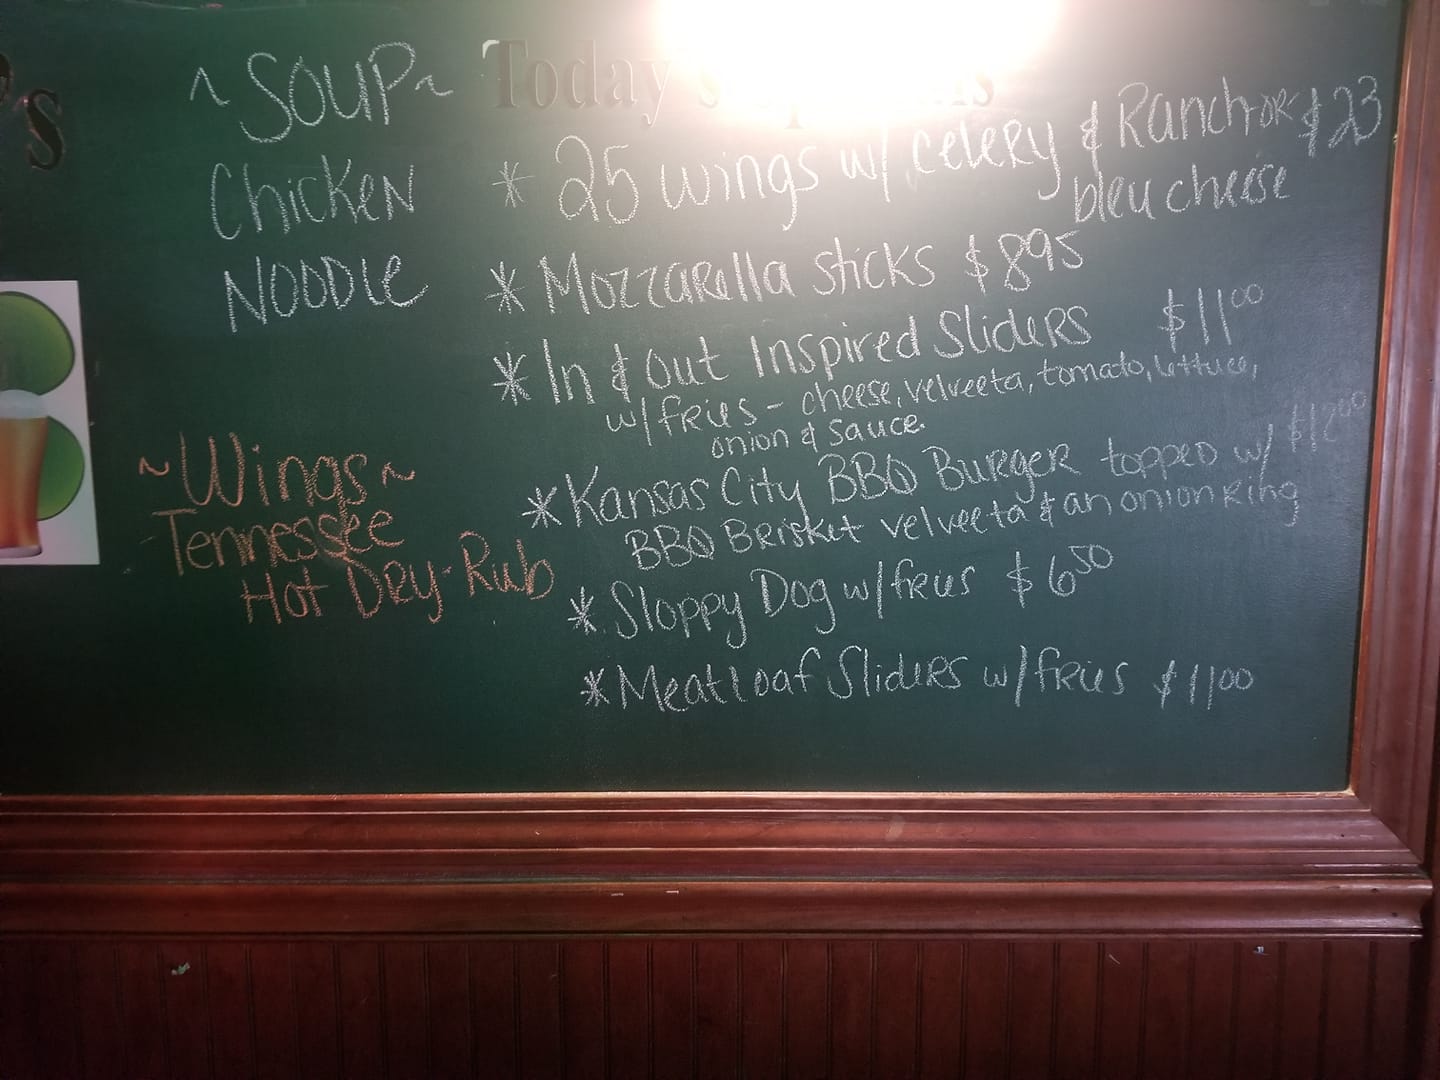 's
~ SOUP ~
Chicken
Noodle
~ Wings ~
Tennessee
Hot Dry-Rub
Today's
* 25 wings w/ celery & Ranch or $23
bleu cheese
* Mozzarella sticks $895
* In & out Inspired Sliders $1100
w/fries - cheese, velveeta, tomato, lettuce,
onion & sauce.
* Kansas City BBQ Burger topped w/ $1200
BBQ Brisket velveeta & an onion ring
* Sloppy Dog w/fries $650
* Meatloaf Sliders w/fries $1100